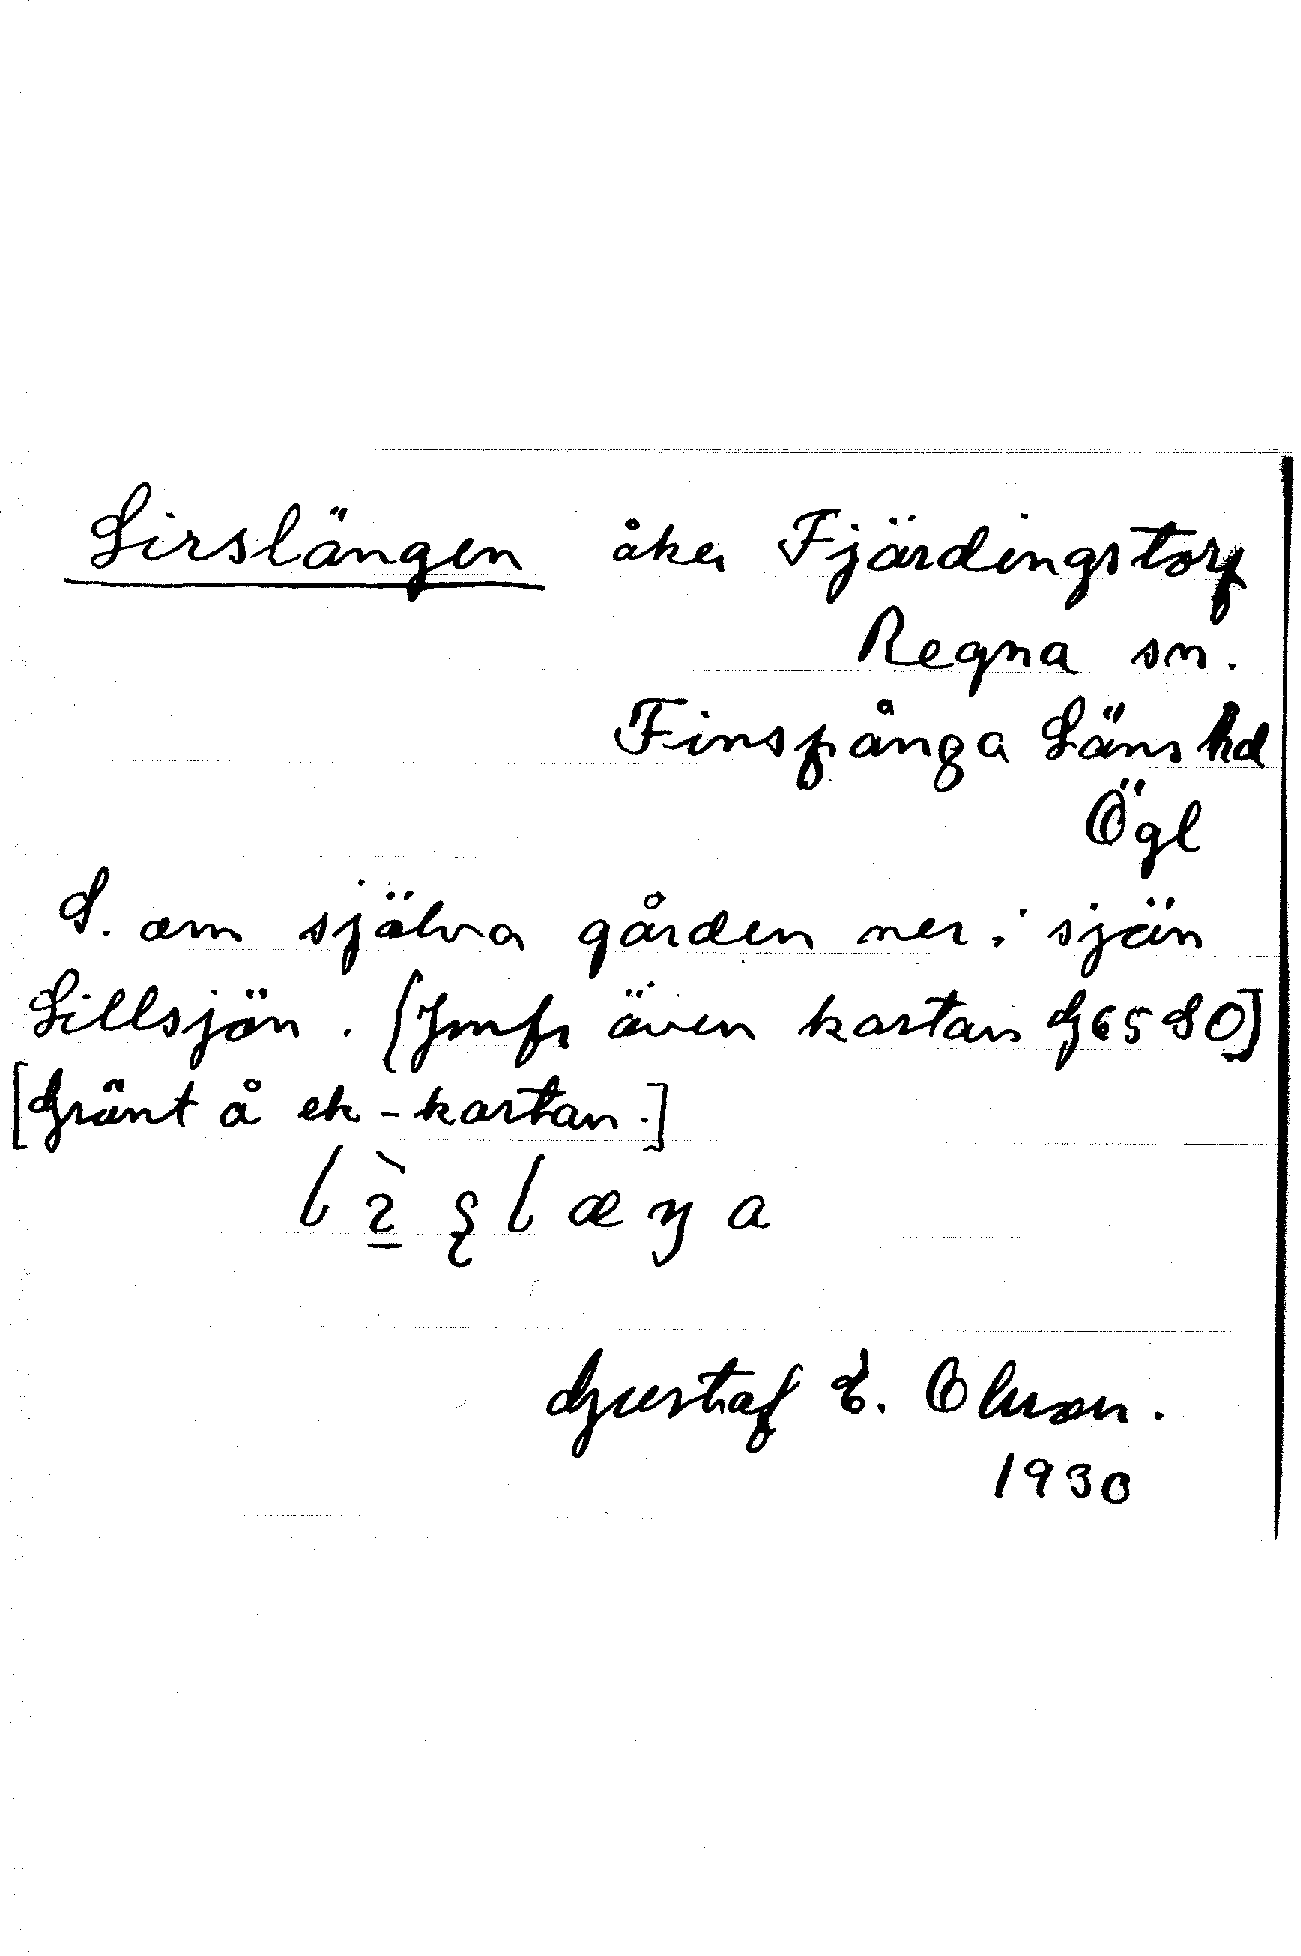 Lirslängen åker Fjärdingstorp
Regna sn.
Finspånga Läns hd
Ögl
S. om själva gården ner i sjön
Lillsjön. [Jmfr även kartan G 65 SO]
[Grönt å ek-kartan.]
Gustaf E. Olsson.
1930